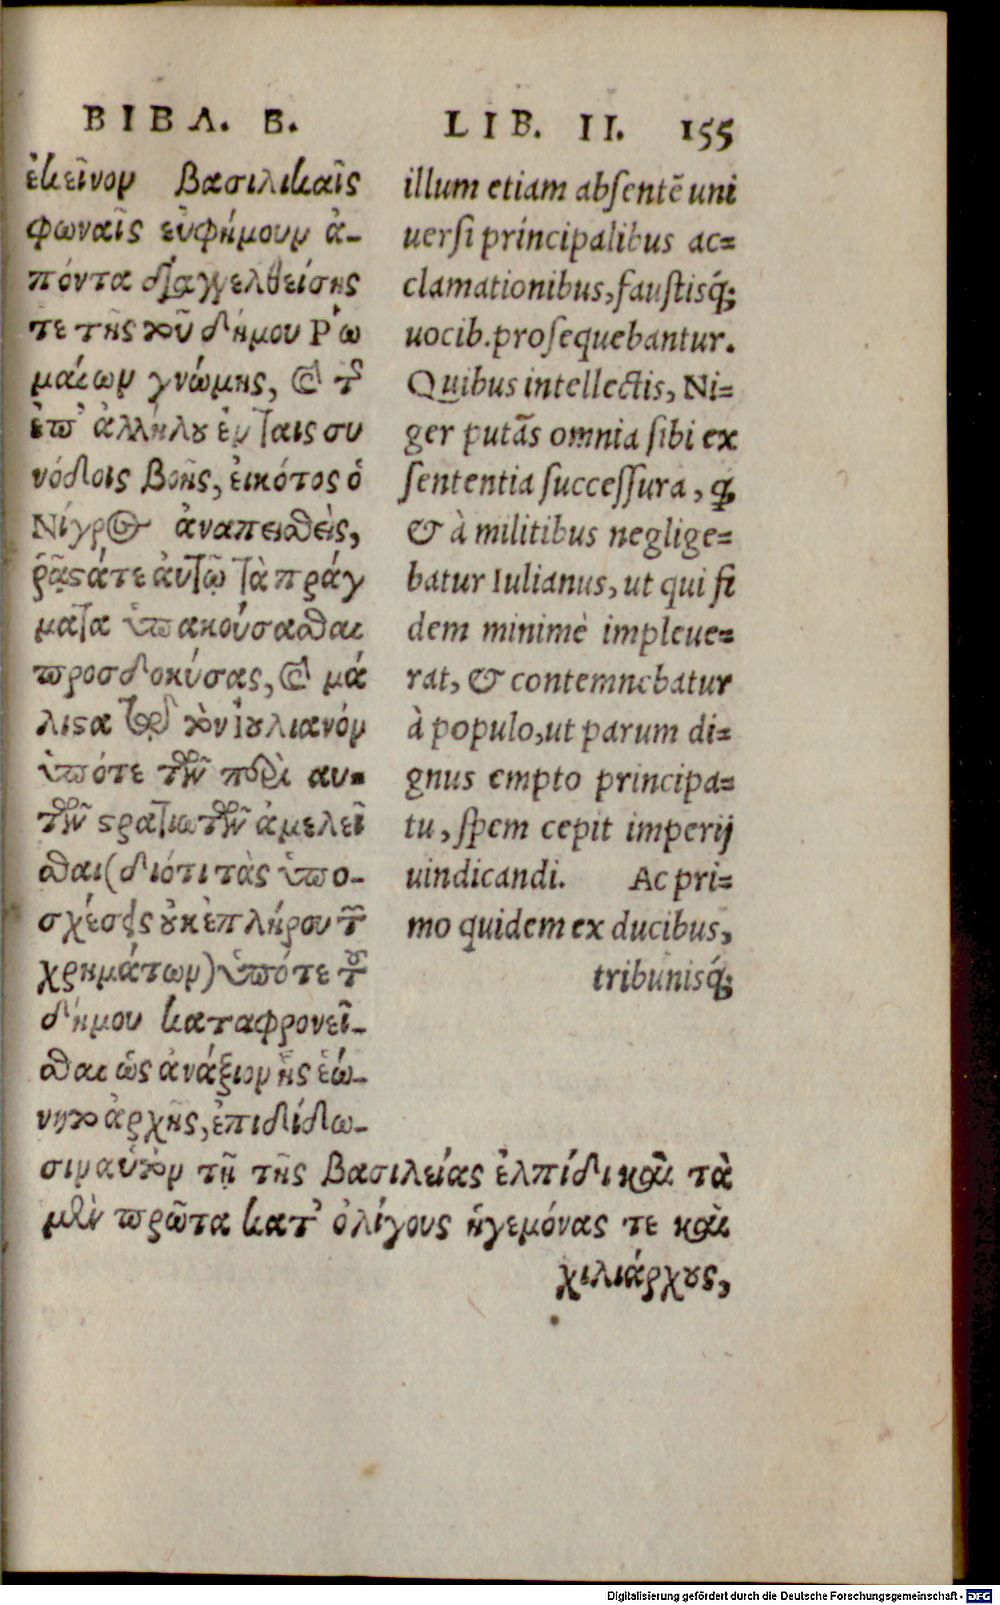 ΒΙΒΛ. Β.
ἐκεῖνον βασιλικαῖς
φωναῖς εὐφήμουν ἀ-
πόντα διαγγελθείσης
τε τῆς τοῦ δήμου Ῥω
μαίων γνώμης, καὶ τῆς
ἐπ' ἀλλήλου ἐν ταις συ
νόδοις βοῆς, εἰκότος ὁ
Νίγρος ἀναπεισθεὶς,
ῥᾷστάτε αὐτῷ τὰ πράγ
ματα ὑπακούσασθαι
προσδοκήσας, καὶ μά
λιστα περὶ τὸν ἰουλιανόν
ὑπότε τῶν περὶ αυ-
τῶν στρατιωτῶν ἀμελεῖ
σθαι (διότι τὰς ὑπο-
σχέσεις οὐκ ἐπλήρου τῶν
χρημάτων) ὑπότε τοῦ
δήμου καταφρονεῖ-
σθαι ὡς ἀνάξιον ἧς ἐώ-
νητο ἀρχῆς, ἐπιδίδω-
σιν αὑτὸν τῇ τῆς βασιλείας ἐλπίδι καὶ τὰ
μὲν πρῶτα κατ' ὀλίγους ἡγεμόνας τε καὶ
χιλιάρχους,
LIB. II. 155
illum etiam absentē uni
uersi principalibus ac=
clamationibus, faustisq́;
uocib. prosequebantur.
Quibus intellectis, Ni=
ger putās omnia sibi ex
sententia successura, q̃
& à militibus neglige=
batur Iulianus, ut qui fi
dem minimè impleue=
rat, & contemnebatur
à populo, ut parum di=
gnus empto principa=
tu, spem cepit imperij
uindicandi. Ac pri=
mo quidem ex ducibus,
tribunisq́;
Digitalisierung gefördert durch die Deutsche Forschungsgemeinschaft - DFG